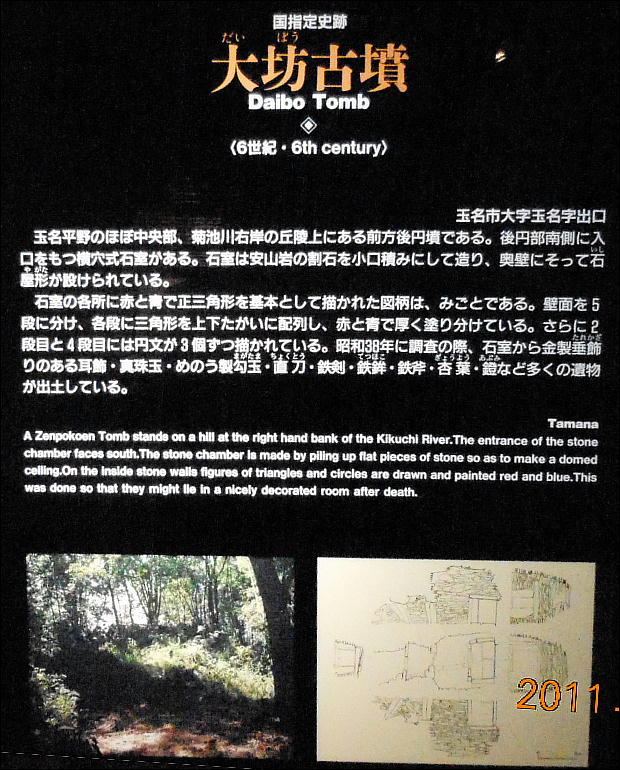 国指定史跡
だい ぼう
大坊古墳
Daibo Tomb
〈6世紀・6th century〉
玉名市大字玉名字出口
玉名平野のほぼ中央部、菊池川右岸の丘陵上にある前方後円墳である。後円部南側に入
いし
口をもつ横穴式石室がある。石室は安山岩の割石を小口積みにして造り、奥壁にそって石
や がた
屋形が設けられている。
石室の各所に赤と青で正三角形を基本として描かれた図柄は、みごとである。壁面を5
段に分け、各段に三角形を上下たがいに配列し、赤と青で厚く塗り分けている。さらに2
段目と4段目には円文が3個ずつ描かれている。昭和38年に調査の際、石室から金製垂飾
たれかざ
まがたま ちょくとう てつほこ ぎょうよう あぶみ
りのある耳飾・真珠玉・めのう製勾玉・直刀・鉄剣・鉄鉾・鉄斧・杏葉・鐙など多くの遺物
が出土している。
Tamana
A Zenpokoen Tomb stands on a hill at the right hand bank of the Kikuchi River.The entrance of the stone
chamber faces south.The stone chamber is made by piling up flat pieces of stone so as to make a domed
ceiling.On the inside stone walls figures of triangles and circles are drawn and painted red and blue.This
was done so that they might lie in a nicely decorated room after death.
2011.